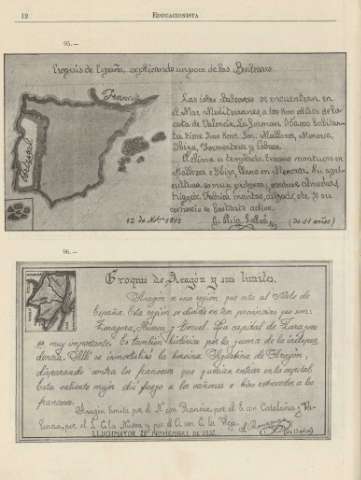 12 EDUCACIONISTA
95.—
Croquis de España, explicando un poco de las Baleares.
Francia
Portugal
Las islas Baleares se encuentran en
el Mar Mediterráneo, a los
costa de Valencia. La forman
Mallorca, Menorca,
Ibiza, Formentera y Cabrera.
El clima es templado, terreno montuoso en
Mallorca e Ibiza, llano en Menorca. Su agri-
cultura es muy próspera, produce almendras,
trigo,
comercio es bastante activo.
12 de Nbre 1912
(de 11 años)
96.—
Croquis de Aragón y sus límites.
Aragón es una región que está al Norte de
España. Esta región se divide en tres provincias que son:
Zaragoza, Huesca y Teruel. La capital de Zaragoza
es muy importante. Es también histórica por la guerra de la indepen-
dencia. Allí se inmortalizó la heroína Agustina de Aragón,
disparando contra los franceses que querían entrar en la capital.
Esta valiente mujer dió fuego a los cañones e hizo retroceder a los
franceses.
Aragón limita por el N. con Francia, por el E. con Cataluña y Va-
lencia, por el S. C. la Nueva y por el O. con C. la Vieja.
LLUCHMAYOR 20 NOVIEMBRE DE 1912